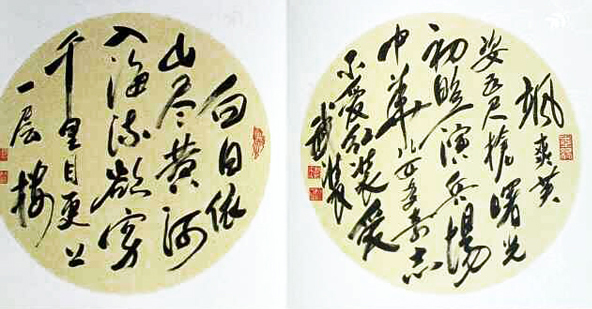 白日依
山尽黄河
入海流欲穷
千里目更上
一层楼
飒爽英
姿五尺槍曙光
初照演兵場
中華儿女多奇志
不爱红装爱
武装